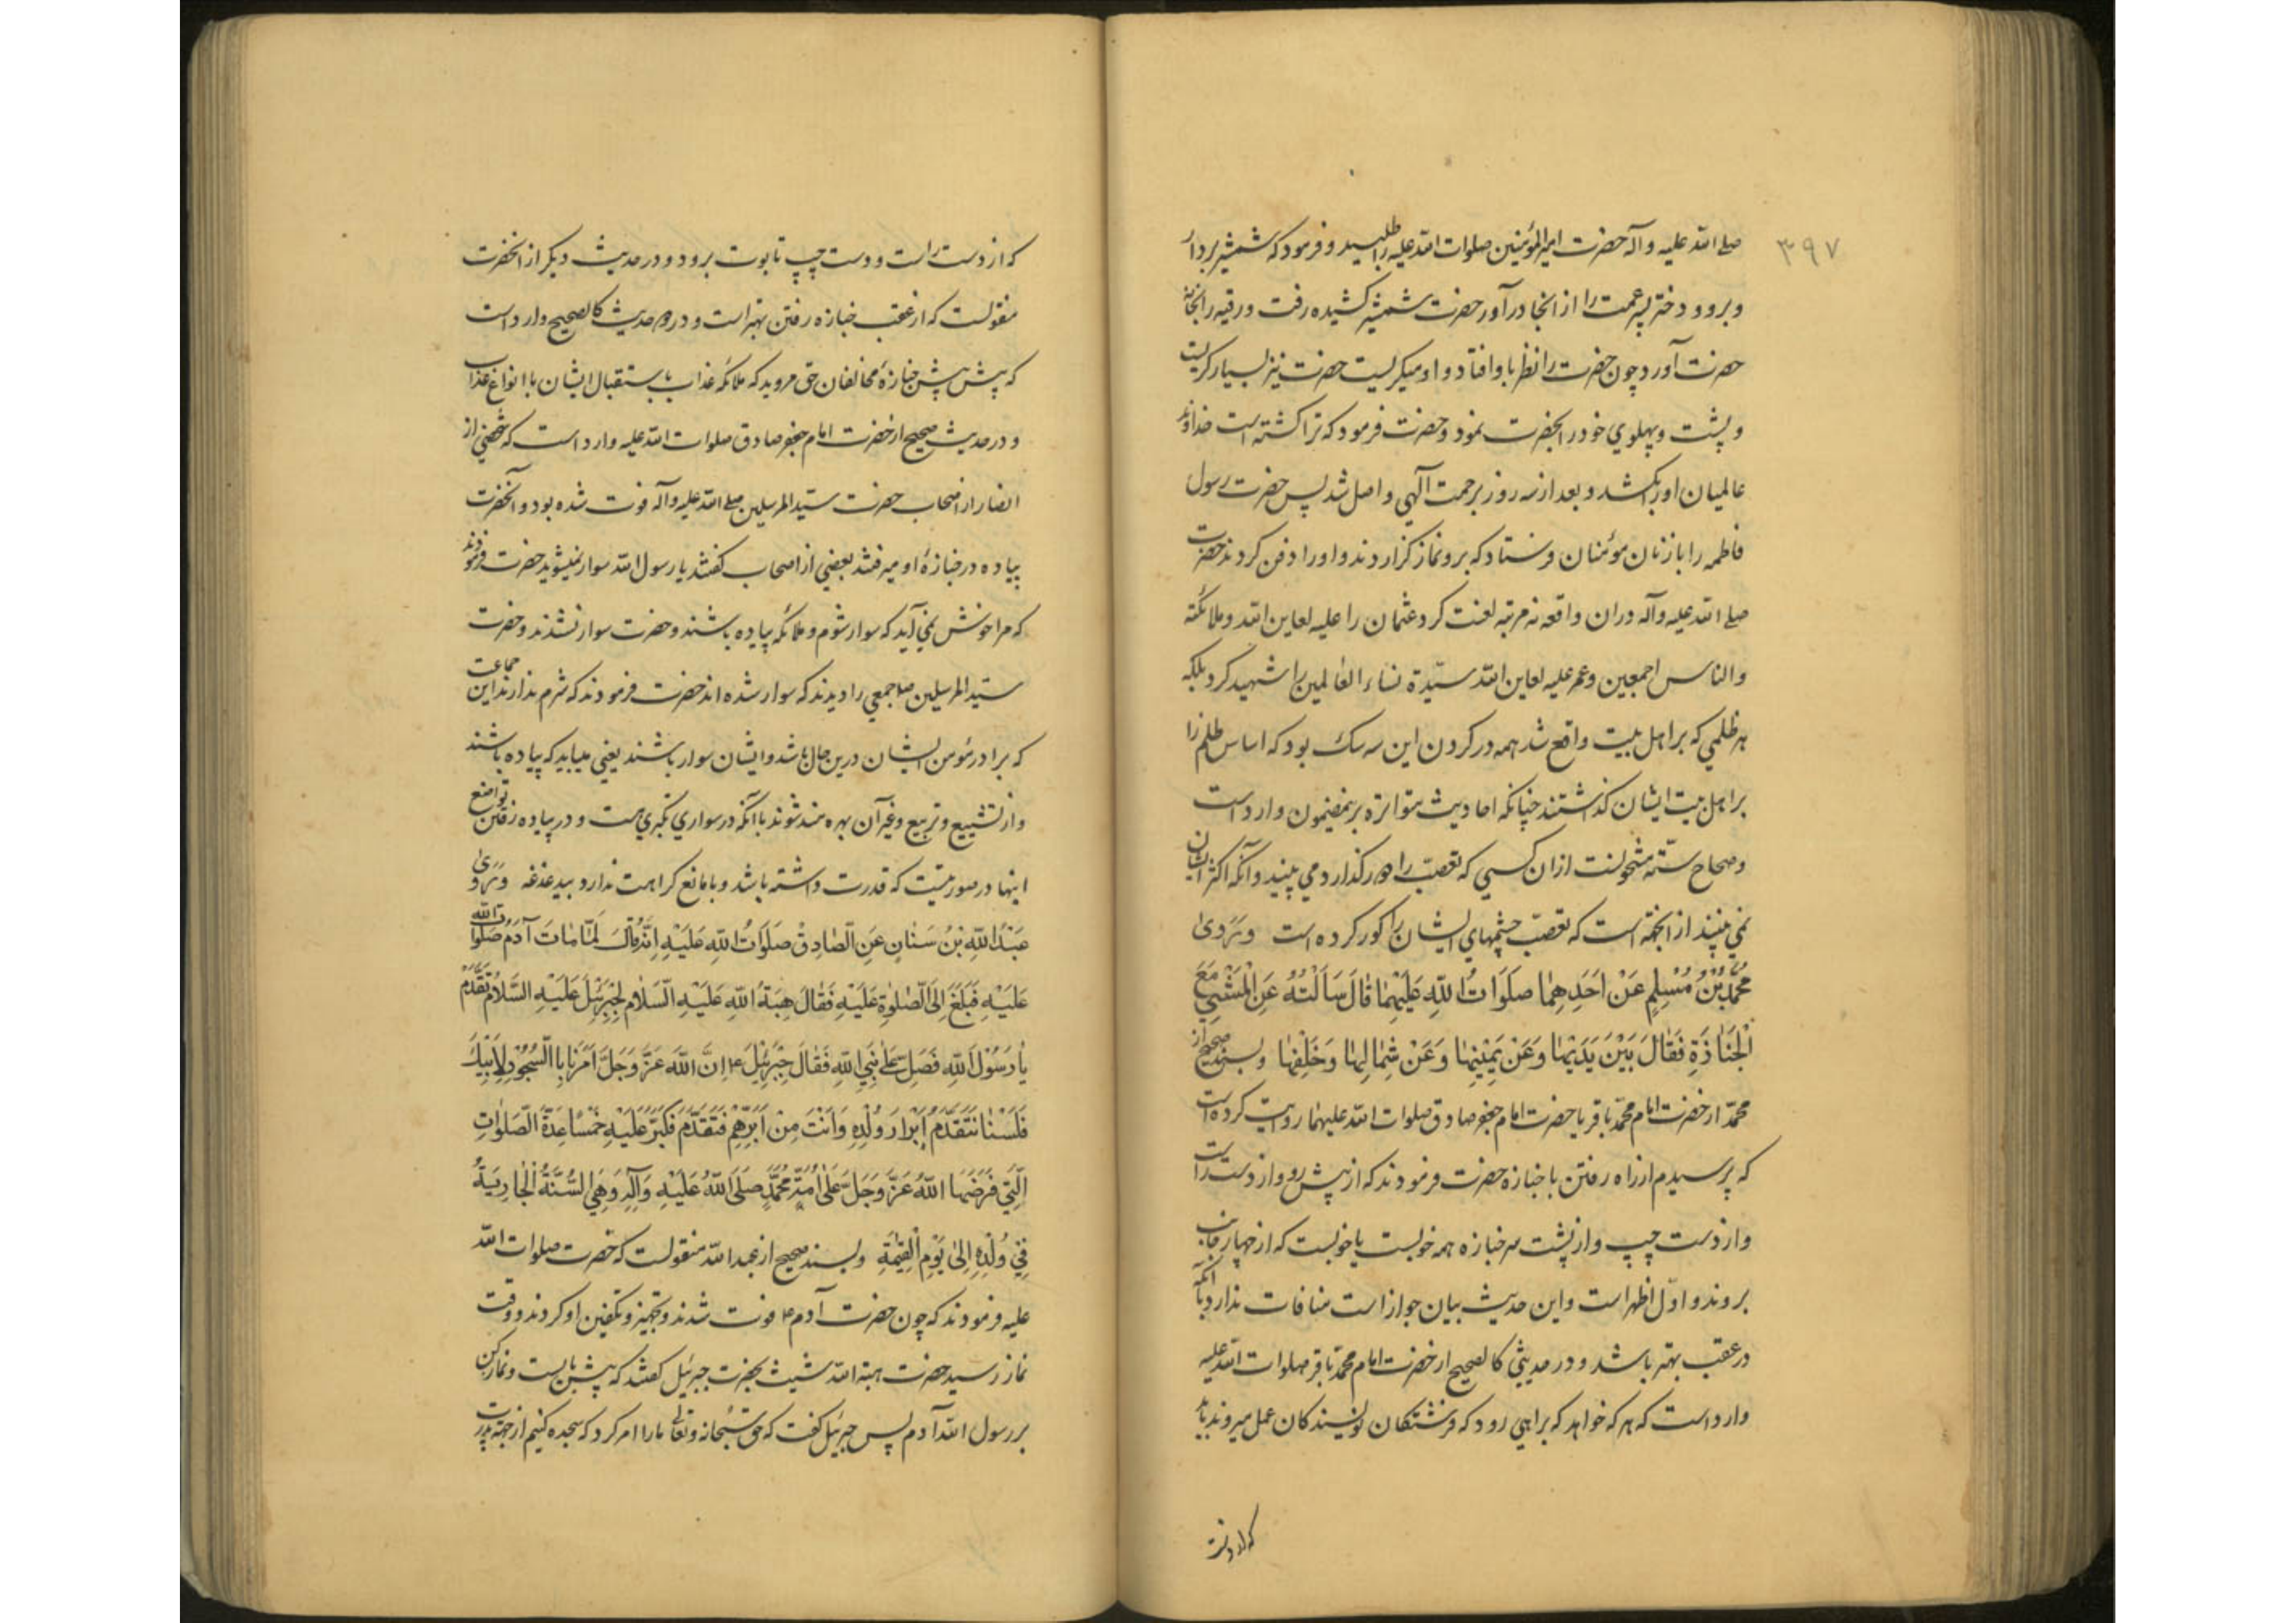 ۳۹۷
صلی الله علیه و آله حضرت امیر المؤمنین صلوات الله علیه را طلبید و فرمود که شمشیر بردار
و برو و دختر پسر عمت را از انجا در آور حضرت شمشیر کشیده رفت و رقیه را بخانه
حضرت آورد چون حضرت را نظر باو افتاد و او میکریست حضرت نیز بسیار کریست
و پشت و پهلوي خود را بحضرت نمود و حضرت فرمود که ترا کشته است خداوند
عالمیان او را بکشد و بعد از سه روز برحمت آلهي واصل شد پس حضرت رسول
فاطمه را با زنان مؤمنان فرستاد که برو نماز کزاردند و او را دفن کردند حضرت
صلی الله علیه و آله دران واقعه نه مرتبه لعنت کرد عثمان را علیه لعاین الله و ملائکته
والناس اجمعین و عمر علیه لعاین الله سیّدة نساء العالمین را شهید کرد بلکه
هر ظلمي که بر اهل بیت واقع شد همه در کردن این سه سک بود که اساس ظلم را
بر اهل بیت ایشان کذاشتند چنانکه احادیث متواتره برینمضمون وارد است
و صحاح ستّه مشحونست ازان کسي که تعصب را دور کذارد مي بیند و آنکه اکثر ایشان
نمي بینند از انجهة است که تعصب چشمهاي ایشان را کور کرده است وَ رَوىٰ
مُحَمَّدُ بْنُ مُسْلِمٍ عَنْ اَحَدِهِمٰا صَلَوَاتُ اللّٰهِ عَلَيْهِمٰا قٰالَ سَاَلْتُهُ عَنِ الْمَشْيِ مَعَ
الْجَنٰازَةِ فَقٰالَ بَيْنَ يَدَيْهٰا وَعَنْ يَمِيْنِهٰا وَعَنْ شِمٰالِهٰا وَخَلْفِهٰا و بسند صحیح از
محمّد از حضرت امام محمّد باقر یا حضرت امام جعفر صادق صلوات الله علیهما روایت کرده است
که پرسیدم از راه رفتن با جنازه حضرت فرمودند که از پیش رو و از دست راست
و از دست چپ و از پشت سر جنازه همه خوبست یا خوبست که از چهار جانب
بروند و اوّل اظهر است و این حدیث بیان جواز است منافات ندارد با آنکه
در عقب بهتر باشد و در حدیثي کالصحیح از حضرت امام محمّد باقر صلوات الله علیه
وارد است که هر که خواهد که براهي رود که فرشتکان نویسندکان عمل میروند باید
که از دست
که از دست راست و دست چپ تابوت برود و در حدیث دیکر از انحضرت
منقولست که از عقب جنازه رفتن بهتر است و در حدیث کالصحیح وارد است
که پیش پیش جنازهٔ مخالفان حق مروید که ملائکه عذاب باستقبال ایشان با انواع عذاب
و در حدیث صحیح از حضرت امام جعفر صادق صلوات الله علیه وارد است که شخصي از
انصار از اصحاب حضرت سیّد المرسلین صلی الله علیه و آله فوت شده بود و آنحضرت
پیاده در جنازهٔ او میرفتند بعضي از اصحاب کفتند یا رسول الله سوار نمیشوید حضرت فرمودند
که مرا خوش نمي آید که سوار شوم و ملائکه پیاده باشند و حضرت سوار نشدند و حضرت
سیّد المرسلین ص جمعي را دیدند که سوار شده اند حضرت فرمودند که شرم ندارند این جماعت
که برادر مؤمن ایشان درین حال باشد و ایشان سوار باشند یعني میباید که پیاده باشند
و از تشییع و تربیع و غیر آن بهره مند شوند با آنکه در سواري تکبري هست و در پیاده رفتن تواضع
اینها در صورتیست که قدرت داشته باشد و با مانع کراهت ندارد بیدغدغه وَ رَوىٰ
عَبْدُ اللّٰهِ بْنُ سَنٰانٍ عَنِ الصّٰادِقِ صَلَوٰاتُ اللّٰهِ عَلَيْهِ اِنَّهُ قٰالَ لَمّٰا مٰاتَ آدَمُ صَلَوٰاتُ اللّٰه
عَلَيْهِ فَبَلَغَ اِلَى الصَّلٰوةِ عَلَيْهِ فَقٰالَ هِبَةُ اللّٰهِ عَلَيْهِ السَّلٰامُ لِجِبْرَئِيْلَ عَلَيْهِ السَّلٰامُ تَقَدَّمْ
يٰا رَسُوْلَ اللّٰهِ فَصَلِّ عَلىٰ نَبِيِّ اللّٰهِ فَقٰالَ جِبْرَئِيْلُ ع اِنَّ اللّٰهَ عَزَّ وَجَلَّ اَمَرَنٰا بِالسُّجُوْدِ لِاَبِيْكَ
فَلَسْنٰا نَتَقَدَّمُ اَبْرٰارَ وُلْدِهِ وَاَنْتَ مِنْ اَبَرِّهِمْ فَتَقَدَّمَ فَكَبَّرَ عَلَيْهِ خَمْسًا عِدَّةَ الصَّلَوٰاتِ
الَّتِيْ فَرَضَهَا اللّٰهُ عَزَّ وَجَلَّ عَلىٰ اُمَّةِ مُحَمَّدٍ صَلَّى اللّٰهُ عَلَيْهِ وَآلِهِ وَهِيَ السُّنَّةُ الْجٰارِيَةُ
فِيْ وُلْدِهِ اِلىٰ يَوْمِ الْقِيٰمَةِ و بسند صحیح از عبد الله منقولست که حضرت صلوات الله
علیه فرمودند که چون حضرت آدم ع فوت شدند و تجهیز و تکفین او کردند و وقت
نماز رسید حضرت هبة الله شیث بحضرت جبرئیل کفتند که پیش بایست و نماز کن
بر رسول الله آدم پس جبرئیل کفت که حق سبحانه و تعالی ما را امر کرد که سجده کنیم از جهة پدرت